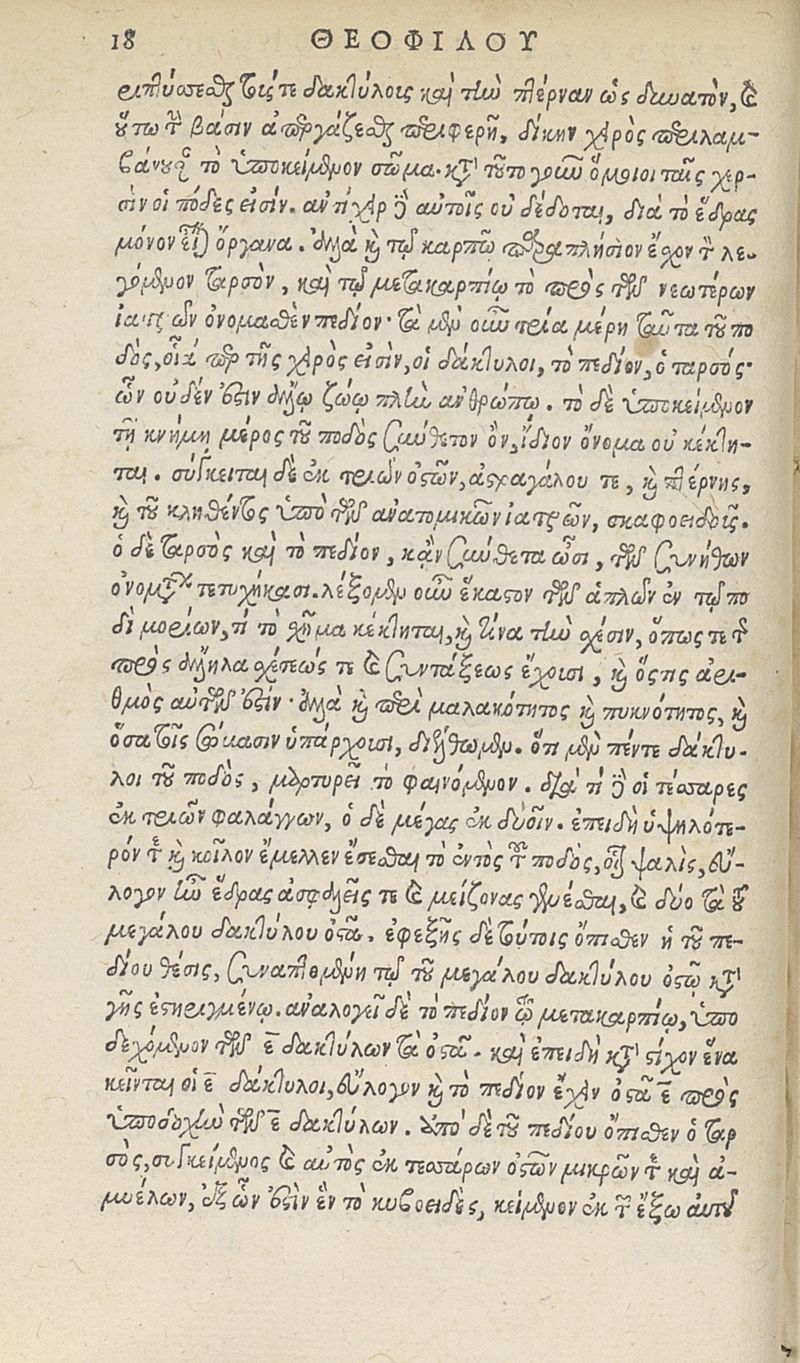 18 ΘΕΟΦΙΛΟΥ
ριπτύσσεσθαι τοῖς τε δακτύλοις καὶ τὴν πτέρναν ὡς δυνατὸν, καὶ
οὕτω τὴν βάσιν ἀπεργάζεσθαι περιφερῆ, δίκην χειρὸς περιλαμ-
βάνουσαν τὸ ὑποκείμενον σῶμα. κατὰ τοῦτο γοῦν ὅμοιοι ταῖς χερ-
σὶν οἱ πόδες εἰσίν. ἀντίχειρ δὲ αὐτοῖς οὐ δέδοται, διὰ τὸ ἕδρας
μόνον εἶναι ὄργανα. ἀλλὰ καὶ τῷ καρπῷ παραπλήσιον ἔχον τὸν λε-
γόμενον ταρσὸν, καὶ τῷ μετακαρπίῳ τὸ πρὸς τῶν νεωτέρων
ἰατρῶν ὀνομαθὲν πεδίον· τὰ μὲν οὖν τρία μέρη ταῦτα τοῦ πο
δὸς, οἷα περ τῆς χειρὸς εἰσὶν, οἱ δάκτυλοι, τὸ πεδίον, ὁ ταρσός·
ὧν οὐδέν ἐστιν ἄλλῳ ζώῳ πλὴν ἀνθρώπῳ. τὸ δὲ ὑποκείμενον
τῇ κνήμῃ μέρος τοῦ ποδὸς σύνθετον ὂν, ἴδιον ὄνομα οὐ κέκλη-
ται. σύγκειται δὲ ἐκ τριῶν ὀστῶν, ἀστραγάλου τε, καὶ πτέρνης,
καὶ τοῦ κληθέντος ὑπὸ τῶν ἀνατομικῶν ἰατρῶν, σκαφοειδοῦς.
ὁ δὲ ταρσὸς καὶ τὸ πεδίον, κἂν σύνθετα ὦσι, τῶν συνήθων
ὀνομάτων τετυχήκασι. λέξομεν οὖν ἕκαστον τῶν ἁπλῶν ἐν τῷ πο
δὶ μορίων, τί τὸ σχῆμα κέκληται, καὶ τίνα τὴν σχέσιν, ὅπως τε τῆς
πρὸς ἄλληλα σχέσεώς τε καὶ συντάξεως ἔχουσι, καὶ ὅστις ἀρι-
θμὸς αὐτῶν ἐστίν· ἀλλὰ καὶ περὶ μαλακότητος καὶ πυκνότητος, καὶ
ὅσα τοῖς σώμασιν ὑπάρχουσι, διέλθωμεν. ὅτι μὲν πέντε δάκτυ-
λοι τοῦ ποδὸς, μαρτυρεῖ τὸ φαινόμενον. διὰ τί δὲ οἱ τέσσαρες
ἐκ τριῶν φαλάγγων, ὁ δὲ μέγας ἐκ δυοῖν. ἐπειδὴ ὑψηλότε-
ρόν τε καὶ κοῖλον ἔμελλεν ἔσεσθαι τὸ ἐντὸς τοῦ ποδὸς, οἷα ψαλὶς, εὔ-
λογον ἦν ἕδρας ἀσφαλεῖς τε καὶ μείζονας γενέσθαι, καὶ δύο τὰ τοῦ
μεγάλου δακτύλου ὀστᾶ. ἐφεξῆς δὲ τούτοις ὄπισθεν ἡ τοῦ πε-
δίου θέσις, συναπτομένη τῷ τοῦ μεγάλου δακτύλου ὀστῷ κατὰ
γῆς ἐστηριγμένῳ. ἀναλογεῖ δὲ τὸ πεδίον τῷ μετακαρπίῳ, ὑπο
δεχόμενον τῶν ε̅ δακτύλων τὰ ὀστᾶ. καὶ ἐπειδὴ κατὰ στίχον ἕνα
κεῖνται οἱ ε̅ δάκτυλοι, εὔλογον καὶ τὸ πεδίον ἔχειν ὀστᾶ ε̅ πρὸς
ὑποδοχὴν τῶν ε̅ δακτύλων. ἀπὸ δὲ τοῦ πεδίου ὄπισθεν ὁ ταρ
σὸς, συγκείμενος καὶ αὐτὸς ἐκ τεσσάρων ὀστῶν μικρῶν τε καὶ ἀ-
μυέλων, ἐξ ὧν ἐστὶν ἓν τὸ κυβοειδὲς, κείμενον ἐκ τῶν ἔξω αὐτοῦ